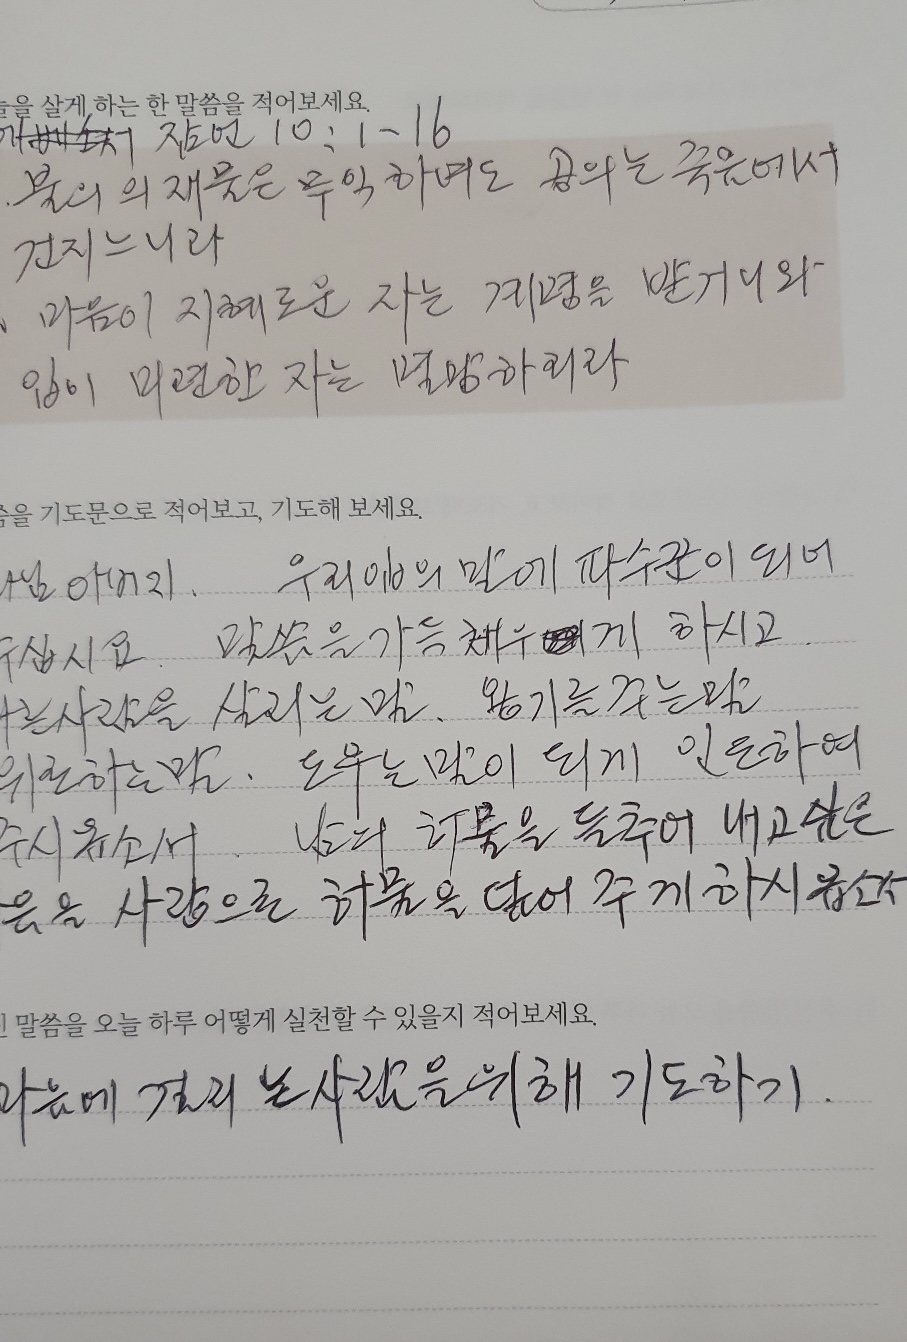 늘을 살게 하는 한 말씀을 적어보세요.
잠언 10:1-16
불의의 재물은 무익하여도 공의는 죽음에서
건지느니라
마음이 지혜로운 자는 계명을 받거니와
입이 미련한 자는 멸망하리라
씀을 기도문으로 적어보고, 기도해 보세요.
나님 아버지. 우리 입의 말에 파수꾼이 되어
주십시요. 말씀을 가득 채우게 하시고
사람을 살리는 말. 용기를 주는 말
위로하는 말. 도우는 말이 되게 인도하여
주시옵소서. 남의 허물을 들추어 내고 싶은
사랑으로 허물을 덮어 주게 하시옵소서
말씀을 오늘 하루 어떻게 실천할 수 있을지 적어보세요.
마음에 걸리는 사람을 위해 기도하기.